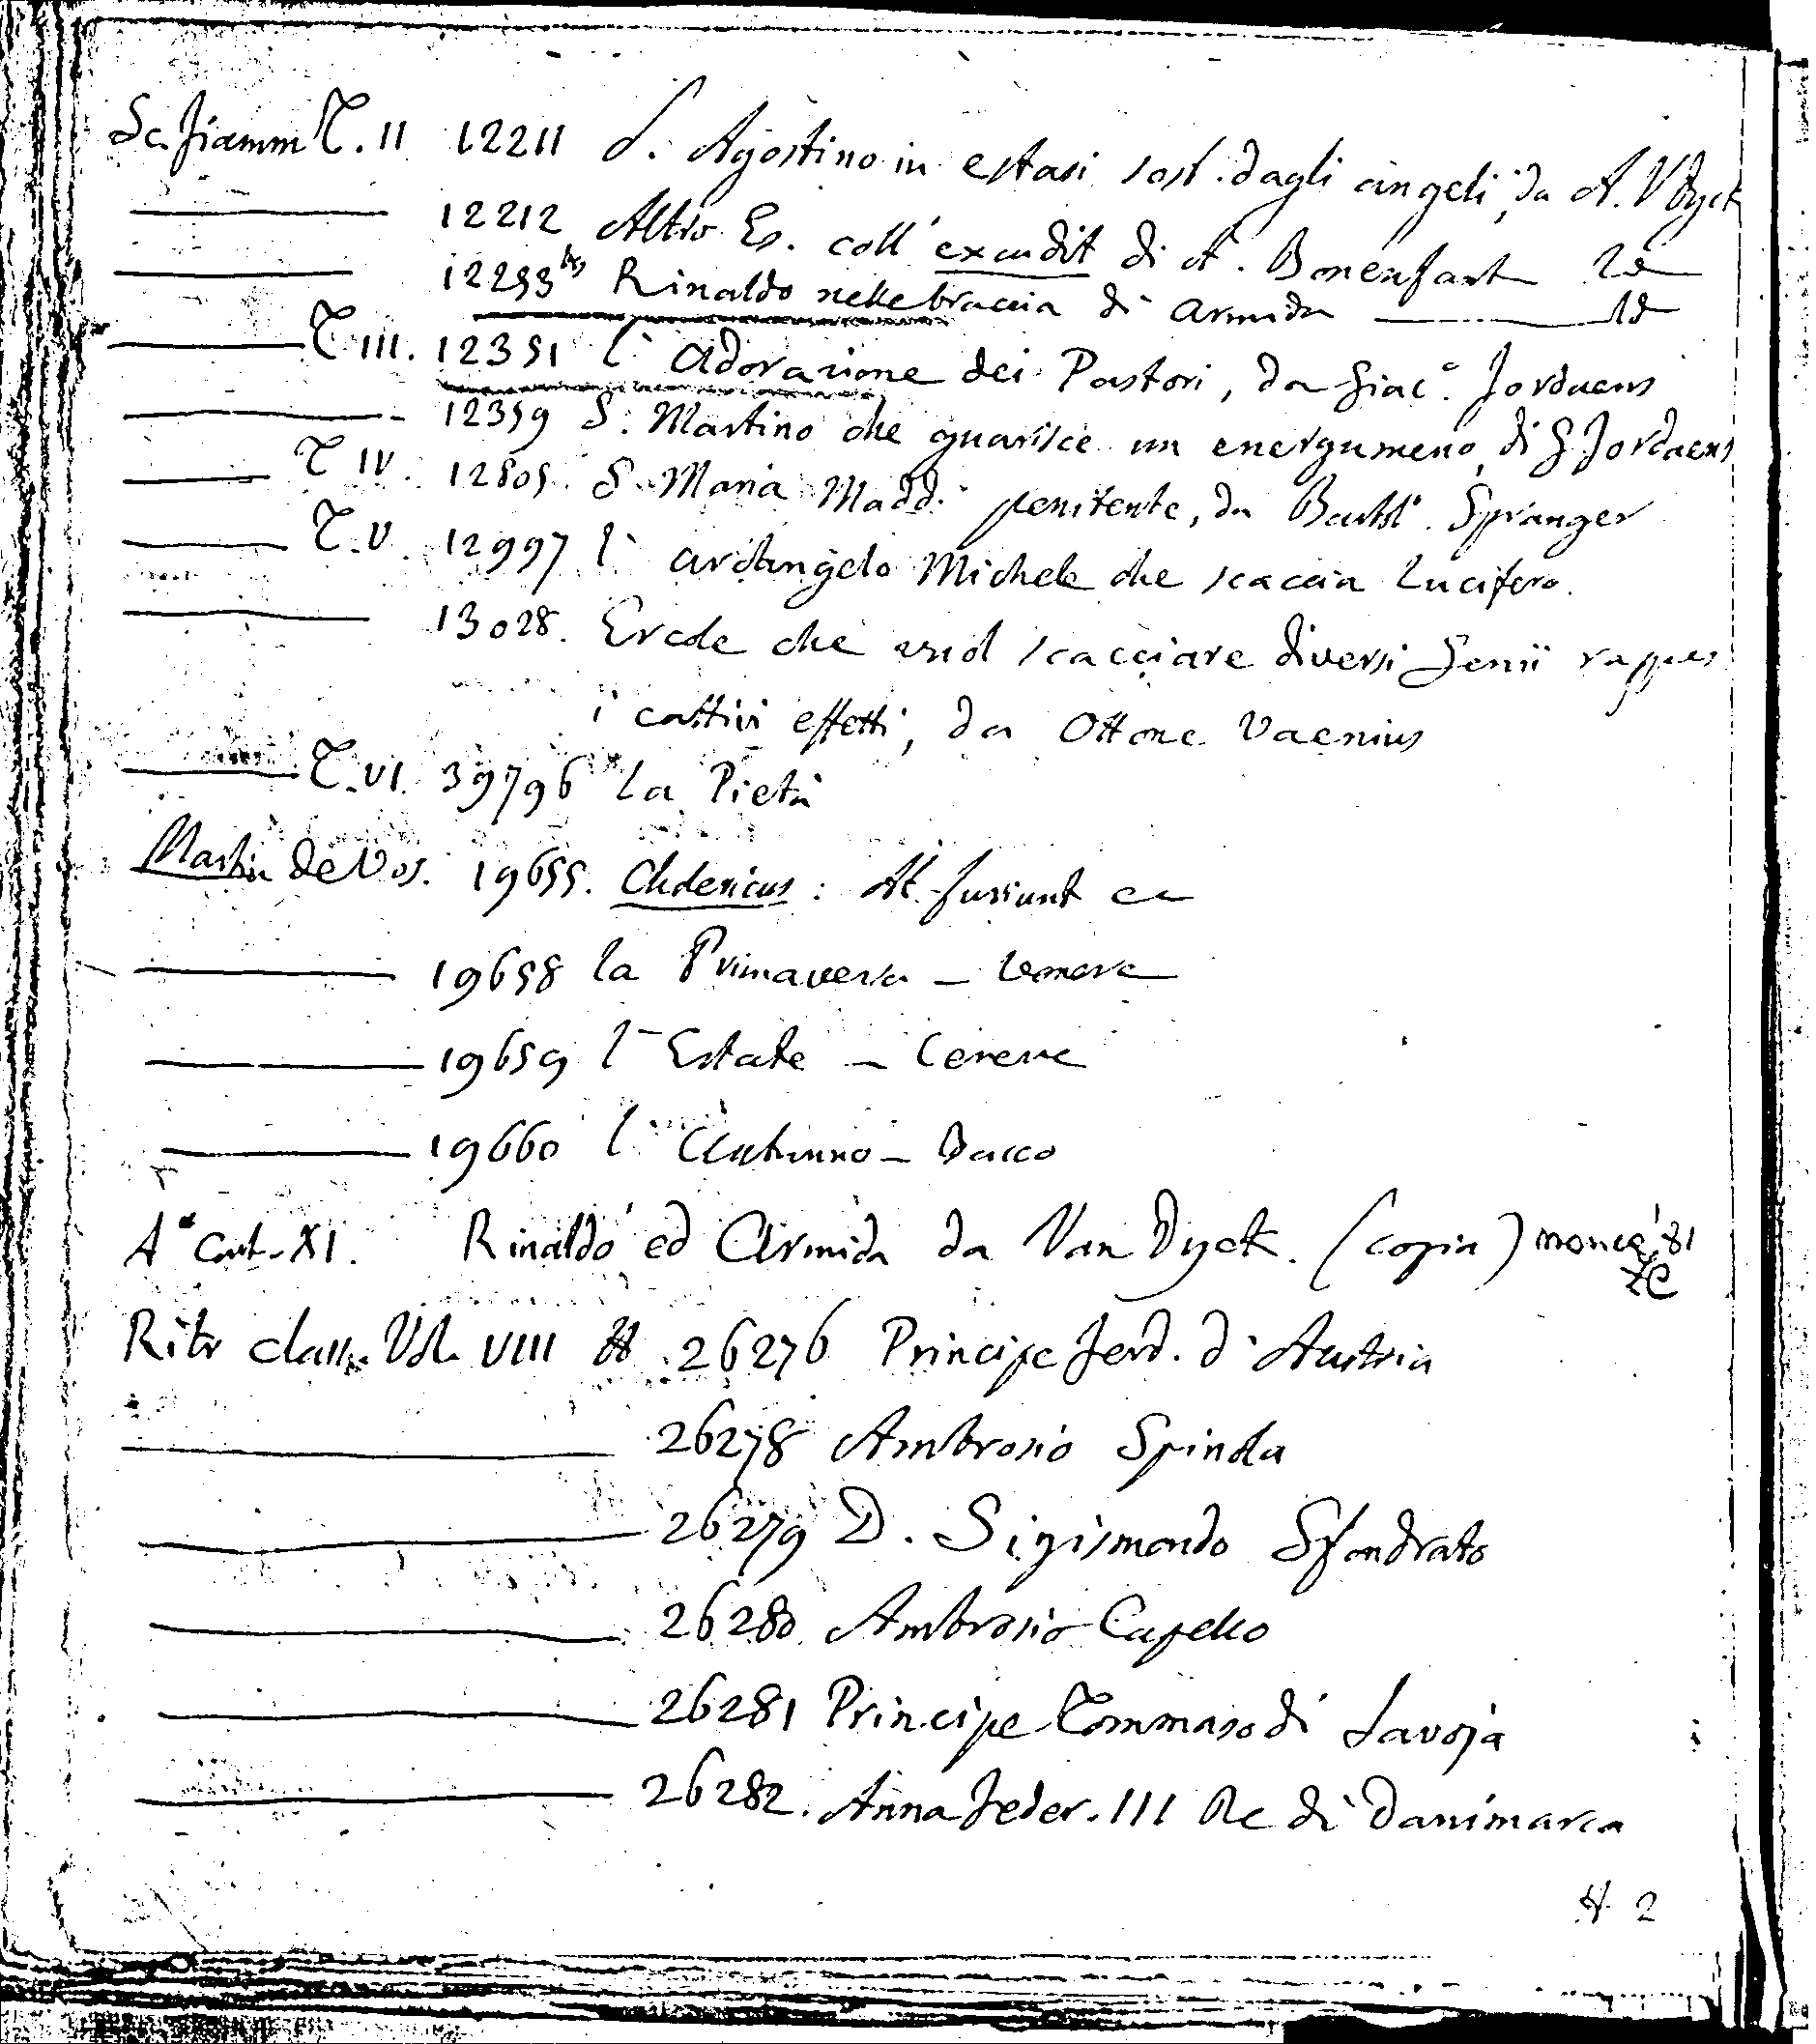 Sc. fiamm T. II 12211 S. Agostino in estasi sost. dagli angeli, da A. VDyck
12212 Altro Es. coll' excudit di A. Bonenfant Id
12253 bis Rinaldo nelle braccia di Armida Id
T III. 12351 l' Adorazione dei Pastori, da Giac.° Jordaens
12359 S. Martino che guarisce un energumeno, di G. Jordaens
T IV. 12805. S. Maria Madd. penitente, da Bartol. Spranger
T. V. 12997 l' arcangelo Michele che scaccia Lucifero.
13028. Ercole che vuol scacciare diversi Genii rappres
i cattivi effetti, da Ottone Vaenius
T. VI. 39796 La Pietà
Martin de Vos. 19655. Childericus: At furiunt
19658 la Primavera – Venere
19659 l' Estate – Cerere
19660 l' Autunno – Bacco
A* Cart. XI. Rinaldo ed Armida da Van Dyck. (copia) manca 81
Ritr class. Vol. VIII 26276 Principe Ferd. d' Austria
26278 Ambrosio Spinola
26279 D. Sigismondo Sfondrato
26280 Ambrosio Capello
26281 Principe Tommaso di Savoja
26282. Anna Feder. III Re di Danimarca
2